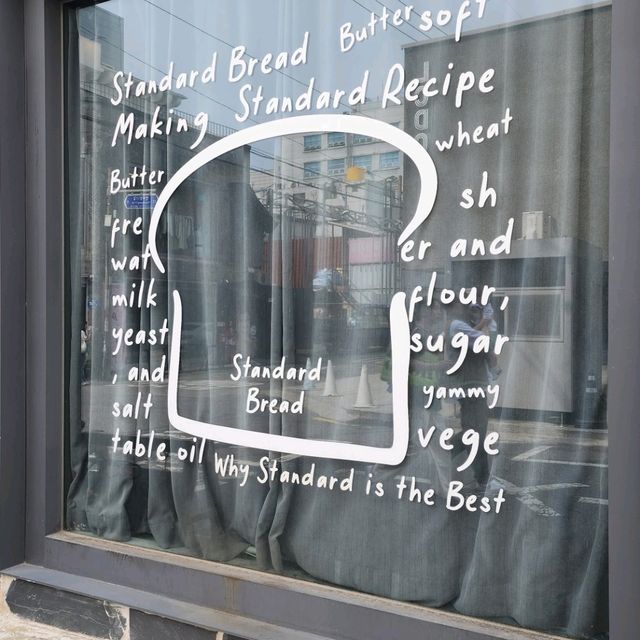 Standard Bread Butter soft
Making Standard Recipe
Butter wheat
fre sh
wat er and
milk flour,
yeast sugar
, and yammy
salt vege
table oil Why Standard is the Best
Standard
Bread